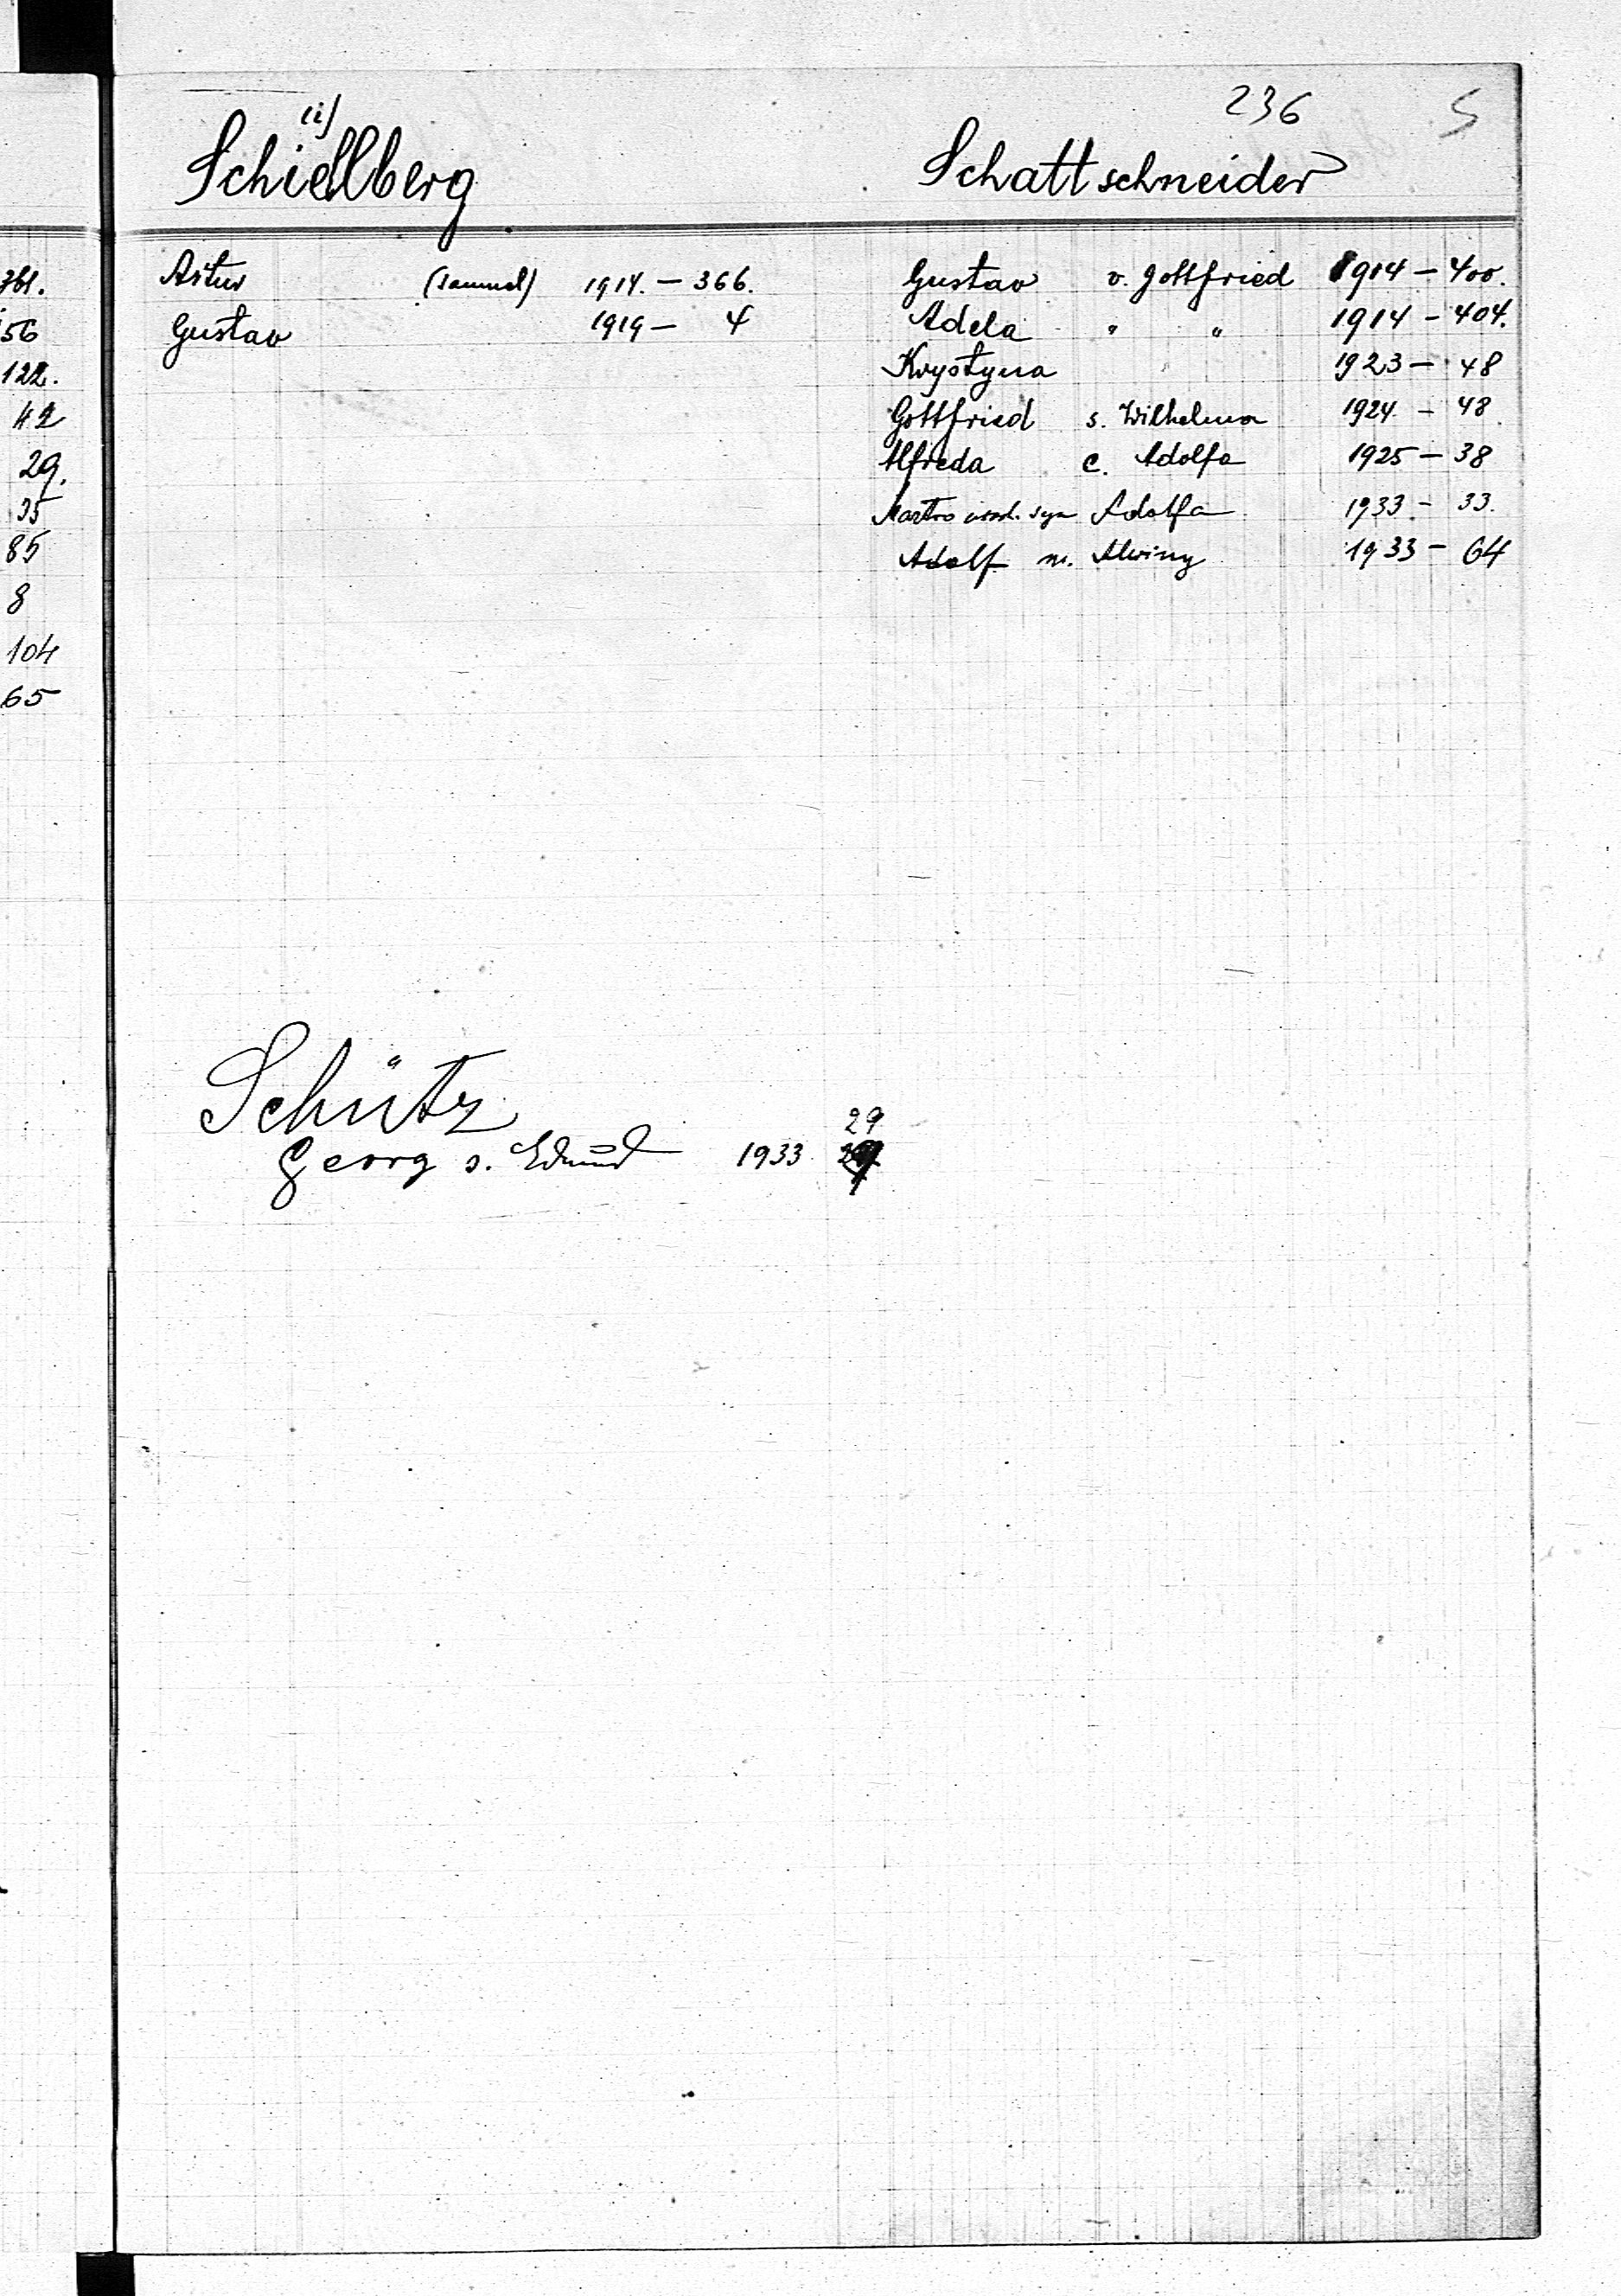 236 S
(i)
Schiedlberg
Artur (Samuel) 1914. — 366.
Gustav 1919 — 4
Schattschneider
Gustav v. Gottfried 1914 — 400.
Adela " " 1914 — 404.
Krystyna 1923 — 48
Gottfried s. Wilhelma 1924 — 48
Alfreda c. Adolfa 1925 — 38
syn Adolfa 1933 — 33.
Adolf m. Alwiny 1933 — 64
Schütz
29
Georg s. Edmund 1933
761.
56
122.
42
29.
35
85
8
104
65